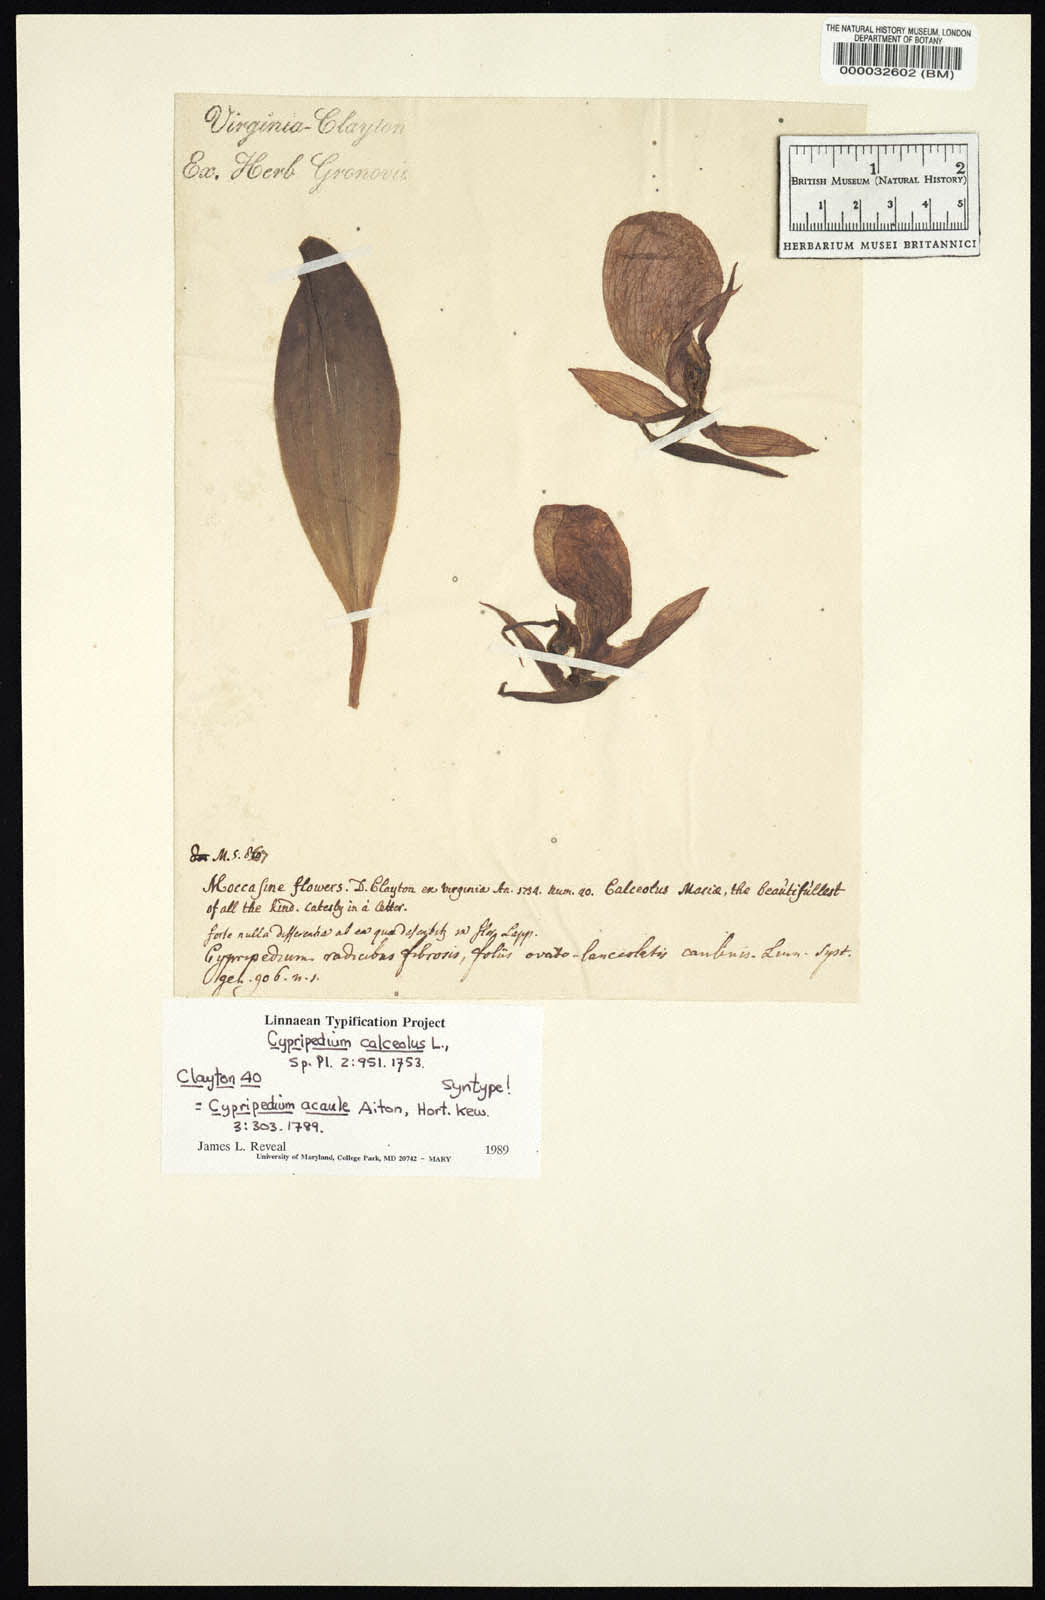 THE NATURAL HISTORY MUSEUM, LONDON
DEPARTMENT OF BOTANY
000032602 (BM)
Virginia-Clayton
Ex. Herb Gronovii
1 2
BRITISH MUSEUM (NATURAL HISTORY)
1 2 3 4 5
HERBARIUM MUSEI BRITANNICI
M. S.
Moccasine flowers. D. Clayton ex Virginia An. 1734. Num. 40. Calceolus Mariæ, the beautifullest
of all the kind. Catesby in a letter.
forte nulla differentia ab ea quæ describitz in flor Lapp.
Cypripedium radicibus fibrosis, foliis ovato-lanceolatis caulinis. Linn. Syst.
gen. 906. n. 1.
Linnaean Typification Project
Cypripedium calceolus L.,
Sp. Pl. 2:951. 1753.
Clayton 40
Syntype!
= Cypripedium acaule Aiton, Hort. Kew.
3:303. 1789.
James L. Reveal 1989
University of Maryland, College Park, MD 20742 – MARY